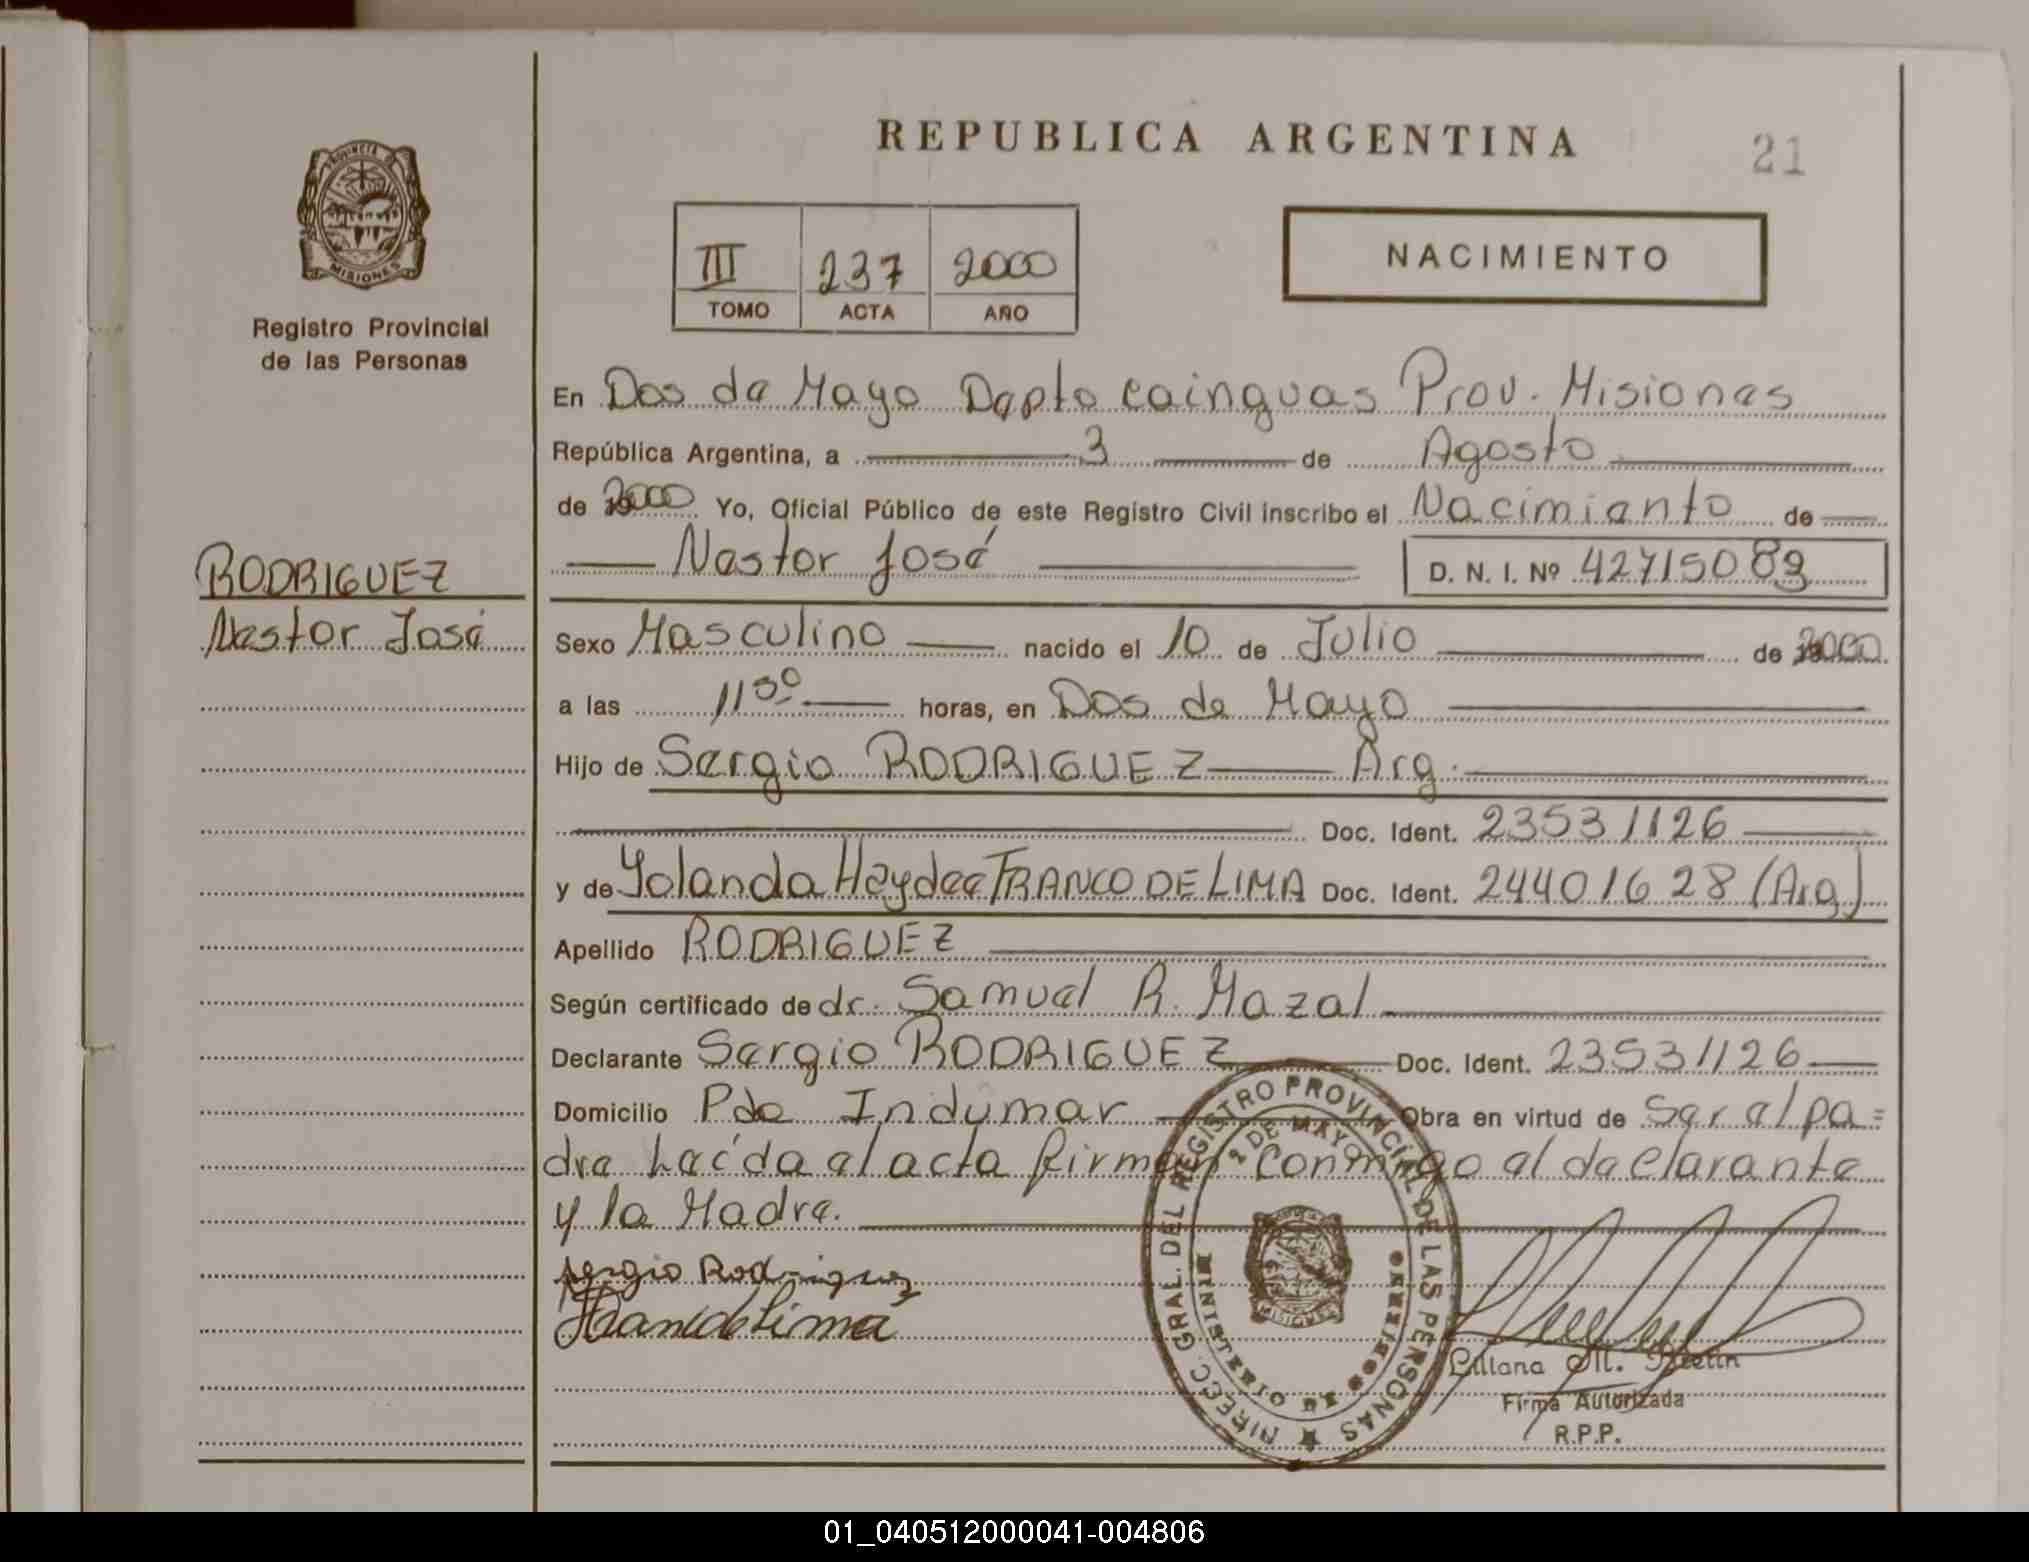 REPUBLICA ARGENTINA
21
PROVINCIA D
MISIONES
Registro Provincial
de las Personas
III 237 2000
TOMO ACTA AÑO
NACIMIENTO
En Dos de Mayo Depto Cainguas Prov. Misiones
República Argentina, a 3 de Agosto
de 2000 Yo, Oficial Público de este Registro Civil inscribo el Nacimiento de
Nestor José D. N. I. Nº 42715089
RODRIGUEZ
Nestor José
Sexo Masculino nacido el 10 de Julio de 2000
a las 11 30 horas, en Dos de Mayo
Hijo de Sergio RODRIGUEZ Arg.
Doc. Ident. 23531126
y de Yolanda Heydee FRANCO DE LIMA Doc. Ident. 24401628 (Arg)
Apellido RODRIGUEZ
Según certificado de dr. Samuel R. Mazal
Declarante Sergio RODRIGUEZ Doc. Ident. 23531126
Domicilio Pde Indumar Obra en virtud de Ser el pa=
dre Leída el acta firman conmigo el declarante
y la Madre.
sergio Rodriguez
DIRECC. GRAL. DEL REGISTRO PROVINCIAL DE LAS PERSONAS
2 DE MAYO
MINISTERIO DE GOBIERNO
MISIONES
Liliana M.
Firma Autorizada
R.P.P.
01_040512000041-004806